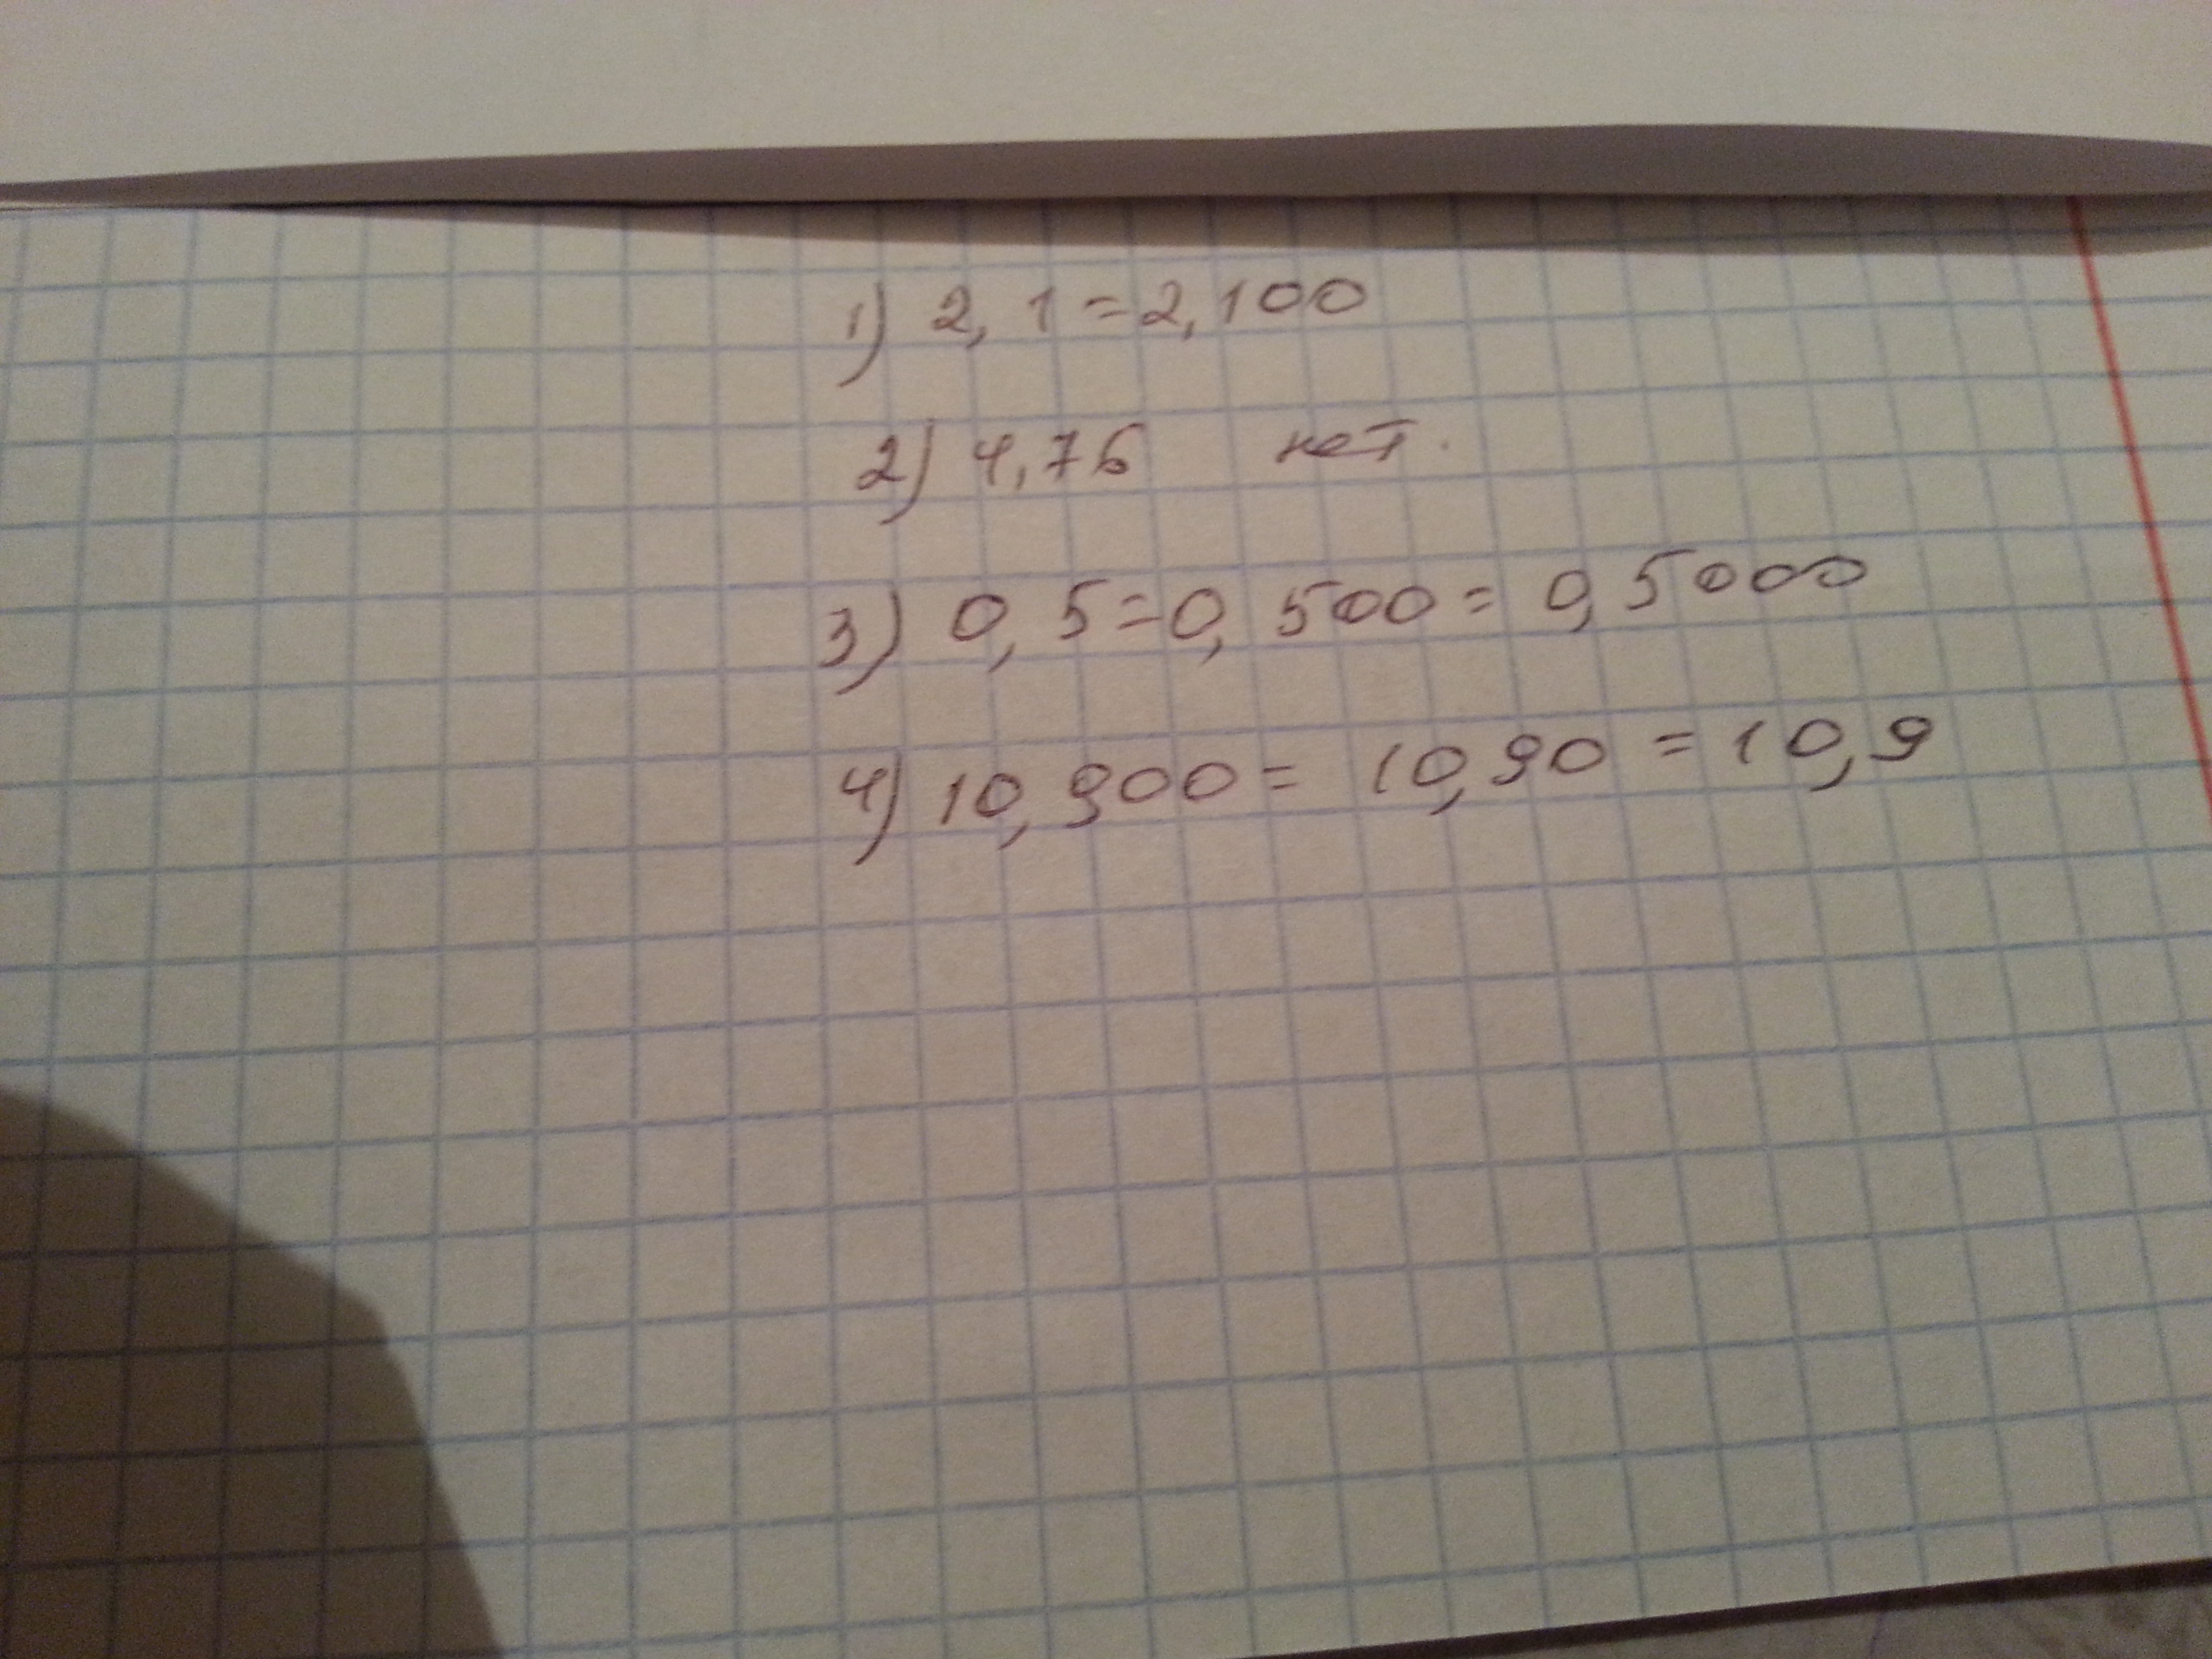 1) 2,1=2,100
2) 4,76 нет.
3) 0,5=0,500=0,5000
4) 10,900=10,90=10,9